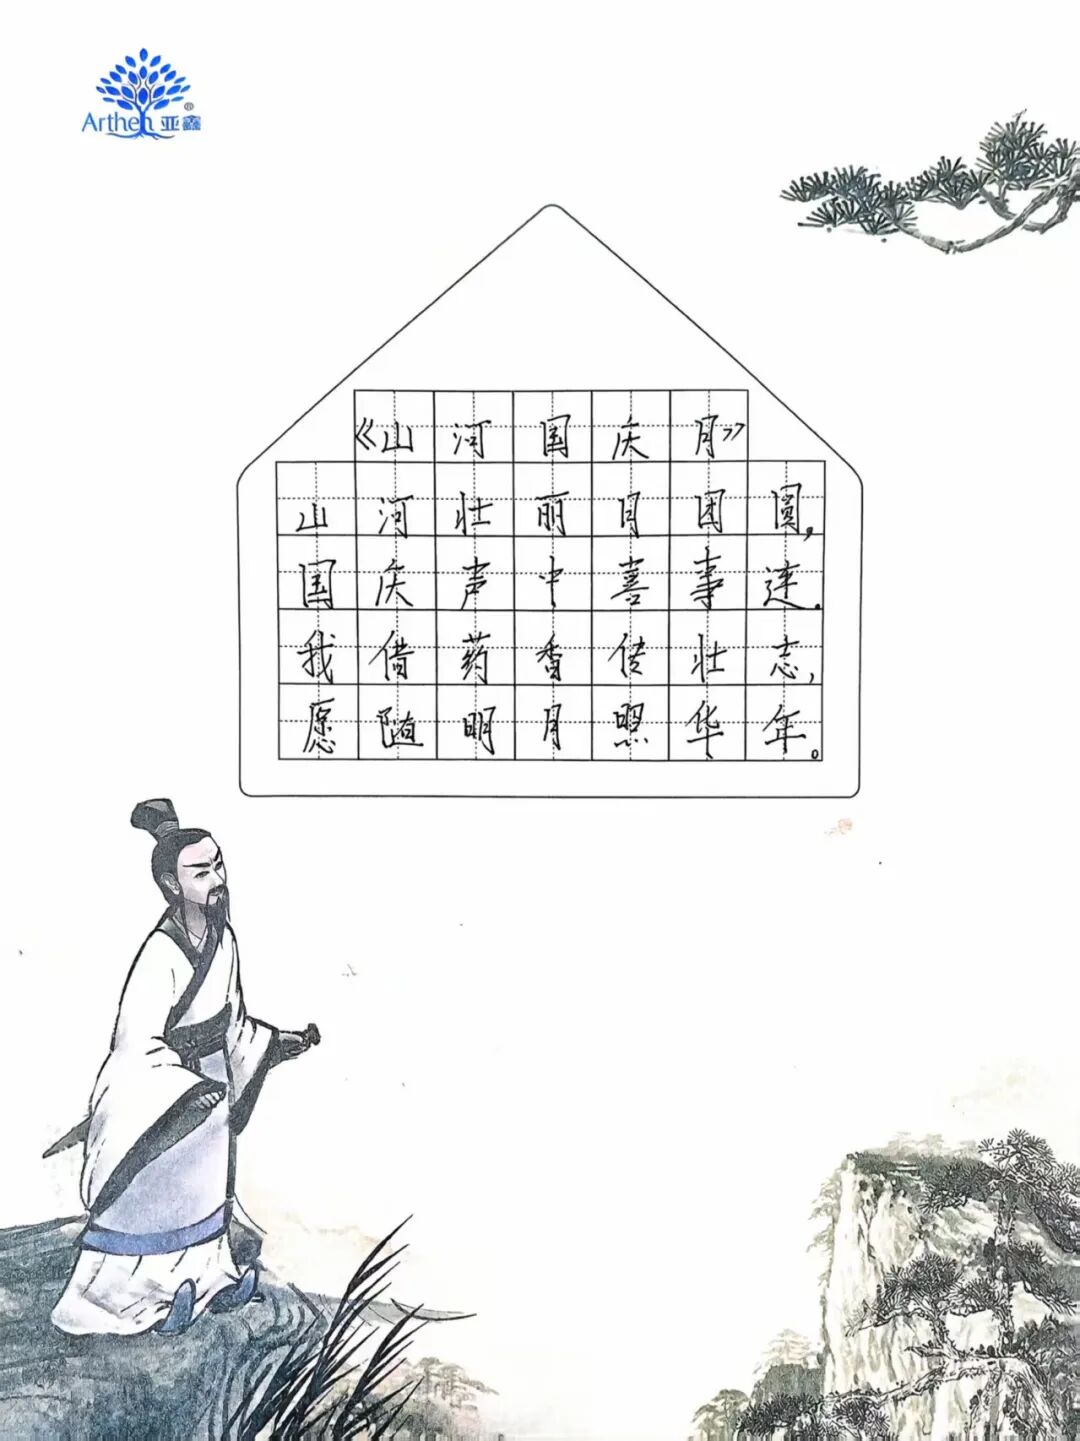 Arthen亚鑫®
《山河国庆月》
山河壮丽月团圆，
国庆声中喜事连。
我借药香传壮志，
愿随明月照华年。